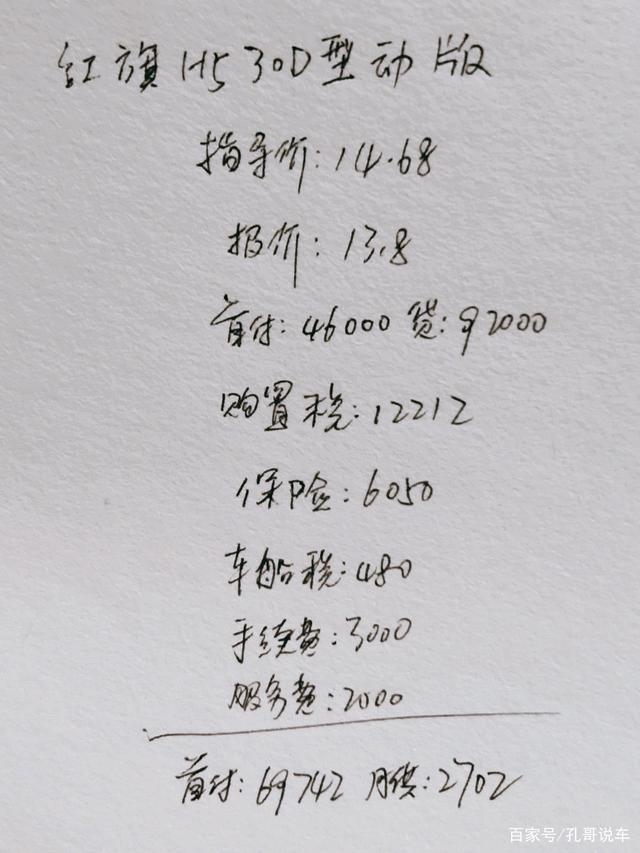 红旗H5 30D型动版
指导价:14.68
报价:13.8
首付:46000 贷:92000
购置税:12212
保险:6050
车船税:480
手续费:3000
服务费:2000
首付:69742 月供:2702
百家号/孔哥说车